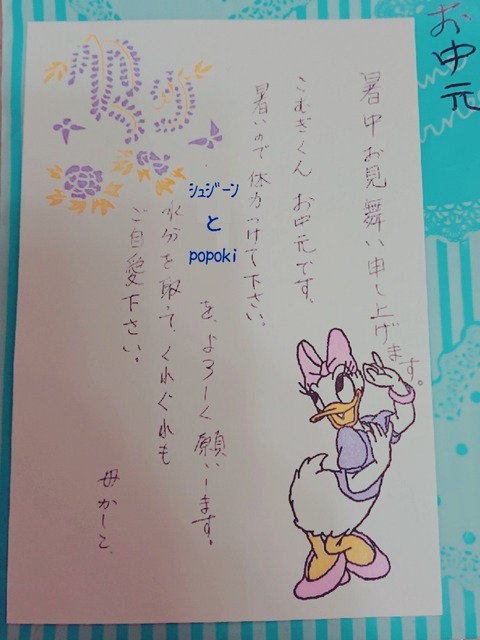 お中元
暑中お見舞い申し上げます。
こむぎくん お中元です、
暑いので体力つけて下さい。
シュジーン
と
popoki
を、よろしく願いします。
水分を取って、くれぐれも
ご自愛下さい。
母かしこ、